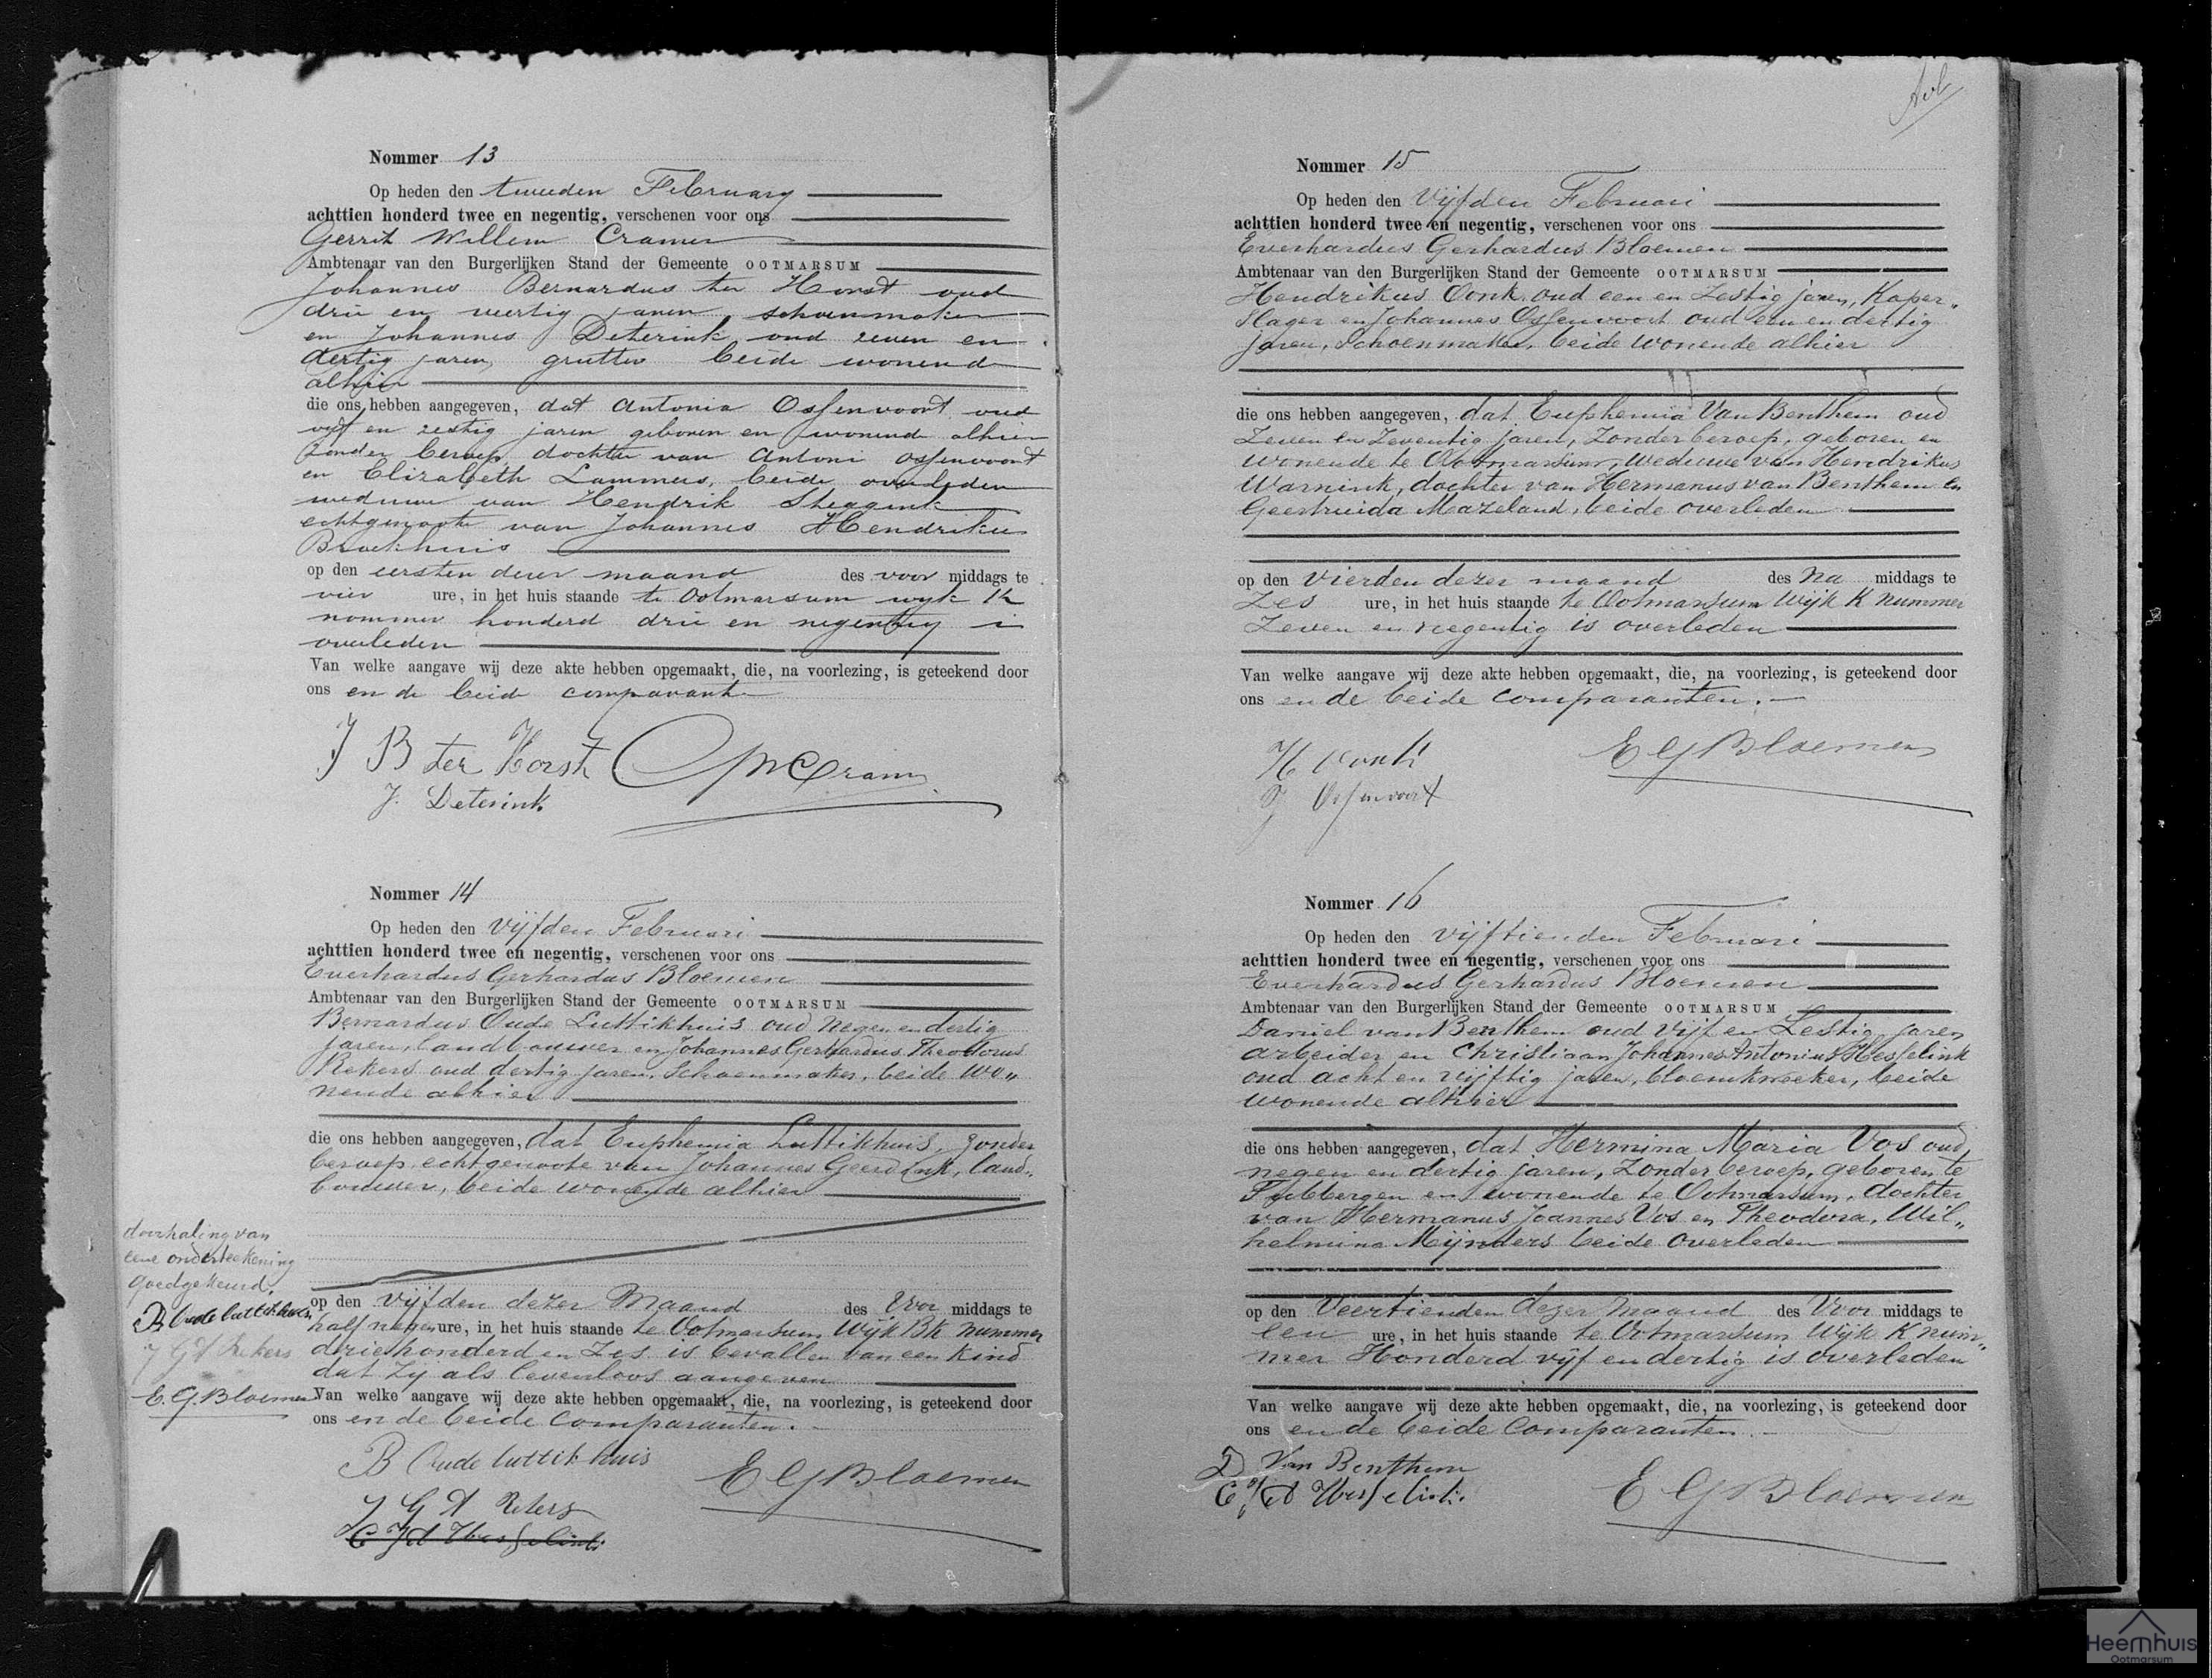 Nommer 13
Op heden den tweeden February
achttien honderd twee en negentig, verschenen voor ons
Gerrit Willem Cramer
Ambtenaar van den Burgerlijken Stand der Gemeente OOTMARSUM
Johannes Bernardus ter Horst oud
drie en veertig jaren schoenmaker
en Johannes Deterink oud zeven en
dertig jaren, grutter beide wonende
alhier
die ons hebben aangegeven, dat Antonia Ossenvoort oud
vijf en zestig jaren geboren en wonende alhier
zonder beroep dochter van Antoni Ossenvoort
en Elizabeth Lammers, beide overleden
weduwe van Hendrik Steggink
echtgenoote van Johannes Hendrikus
Broekhuis
op den eersten dezer maand des voor middags te
vier ure, in het huis staande te Ootmarsum wijk K
nommer honderd drie en negentig is
overleden
Van welke aangave wij deze akte hebben opgemaakt, die, na voorlezing, is geteekend door
ons en de beide comparanten
J B ter Horst GWCramer
J. Deterink
Nommer 14
Op heden den vijfden Februari
achttien honderd twee en negentig, verschenen voor ons
Everhardus Gerhardus Bloemen
Ambtenaar van den Burgerlijken Stand der Gemeente OOTMARSUM
Bernardus Oude Luttikhuis oud negen en dertig
jaren, landbouwer en Johannes Gerhardus Theodorus
Rekers oud dertig jaren, Schoenmaker, beide wo„
nende alhier
die ons hebben aangegeven, dat Euphemia Luttikhuis, zonder
beroep echtgenoote van Johannes Geerdink, land„
bouwer, beide wonende alhier
op den vijfden dezer Maand des Voor middags te
half negen ure, in het huis staande te Ootmarsum Wijk Bk nummer
driehonderd en Zes is bevallen van een kind
dat zij als levenloos aangeven
Van welke aangave wij deze akte hebben opgemaakt, die, na voorlezing, is geteekend door
ons en de beide comparanten.
B Oude luttikhuis
E G Bloemen
J G T Rekers
C J A Hesselink
doorhaling van
eene onderteekening
goedgekeurd.
B Oude luttikhuis
J G T Rekers
E. G. Bloemen
Nommer 15
Op heden den Vijfden Februari
achttien honderd twee en negentig, verschenen voor ons
Everhardus Gerhardus Bloemen
Ambtenaar van den Burgerlijken Stand der Gemeente OOTMARSUM
Hendrikus Oonk oud een en Zestig jaren, Koper„
slager en Johannes Ossenvoort oud een en dertig
jaren, Schoenmaker, beide wonende alhier
die ons hebben aangegeven, dat Euphemia Van Benthem oud
Zeven en Zeventig jaren, Zonder beroep, geboren en
wonende te Ootmarsum, weduwe van Hendrikus
Warnink, dochter van Hermanus van Benthem en
Geertruida Mazeland, beide overleden
op den Vierden dezer maand des Na middags te
Zes ure, in het huis staande te Ootmarsum Wijk K nummer
Zeven en negentig is overleden
Van welke aangave wij deze akte hebben opgemaakt, die, na voorlezing, is geteekend door
ons en de beide comparanten.
H Oonk
E G Bloemen
J Ossenvoort
Nommer 16
Op heden den vijftienden Februari
achttien honderd twee en negentig, verschenen voor ons
Everhardus Gerhardus Bloemen
Ambtenaar van den Burgerlijken Stand der Gemeente OOTMARSUM
Daniel van Benthem oud Vijf en Zestig jaren
arbeider en Christiaan Johannes Antonius Hesselink
oud acht en vijftig jaren, bloemkweeker, beide
wonende alhier
die ons hebben aangegeven, dat Hermina Maria Vos oud
negen en dertig jaren, Zonder beroep, geboren te
Tubbergen en wonende te Ootmarsum, dochter
van Hermanus Joannes Vos en Theodora, Wil„
helmina Mijnders beide overleden
op den Veertienden dezer maand des Voor middags te
een ure, in het huis staande te Ootmarsum Wijk K num„
mer Honderd vijf en dertig is overleden
Van welke aangave wij deze akte hebben opgemaakt, die, na voorlezing, is geteekend door
ons en de beide comparanten.
D Van Benthem
C J A Hesselink
E G Bloemen
Heemhuis
Ootmarsum